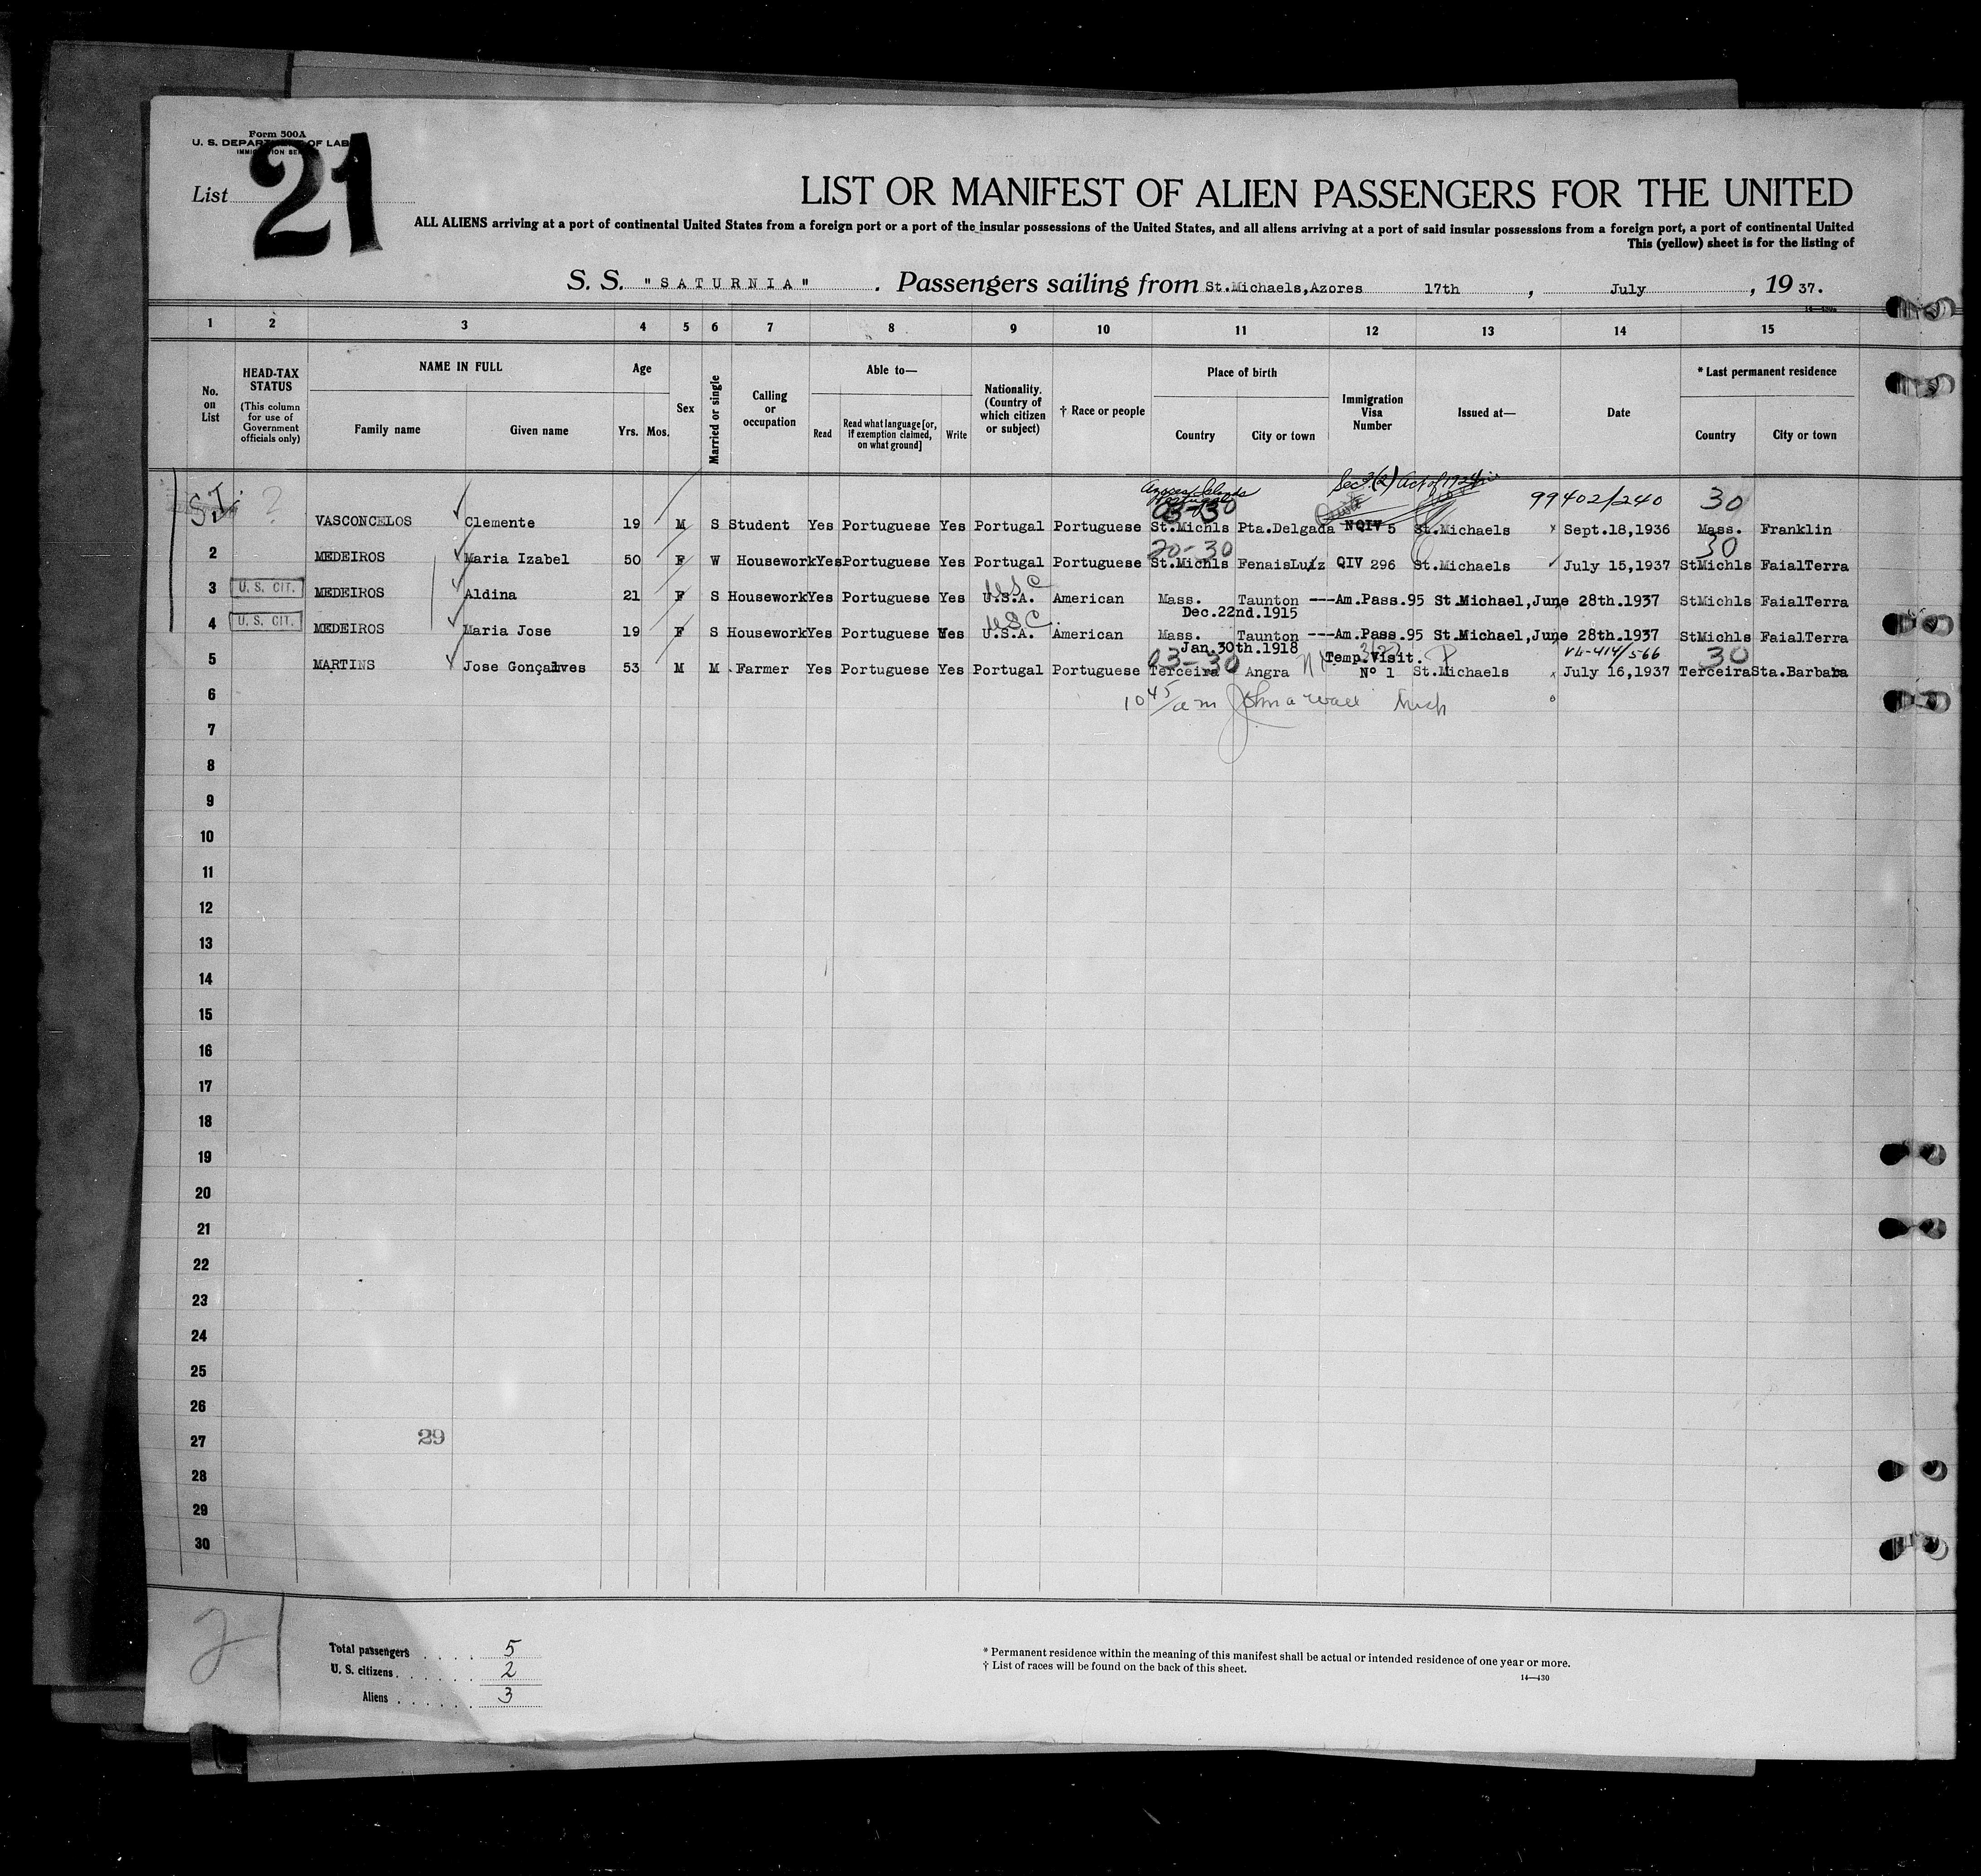 Form 500A
U. S. DEPARTMENT OF LAB
List 21
LIST OR MANIFEST OF ALIEN PASSENGERS FOR THE UNITED
ALL ALIENS arriving at a port of continental United States from a foreign port or a port of the insular possessions of the United States, and all aliens arriving at a port of said insular possessions from a foreign port, a port of continental United
This (yellow) sheet is for the listing of
S. S. "SATURNIA" . Passengers sailing from St.Michaels,Azores 17th , July , 19 37.
1 2 3 4 5 6 7 8 9 10 11 12 13 14 15
No. on List
HEAD-TAX STATUS (This column for use of Government officials only)
NAME IN FULL Family name Given name
Age Yrs. Mos.
Sex
Married or single
Calling or occupation
Able to— Read Read what language [or, if exemption claimed, on what ground] Write
Nationality. (Country of which citizen or subject)
† Race or people
Place of birth Country City or town
Immigration Visa Number
Issued at—
Date
* Last permanent residence Country City or town
Azores Islands Sec. 3(2) Act of 1924
Portugal
SI ? 03-30 99402/240 30
VASCONCELOS Clemente 19 M S Student Yes Portuguese Yes Portugal Portuguese St.Michls Pta.Delgada NQIV 5 St.Michaels Sept.18,1936 Mass. Franklin
20-30 30
2 MEDEIROS Maria Izabel 50 F W Housework Yes Portuguese Yes Portugal Portuguese St.Michls FenaisLuiz QIV 296 St.Michaels July 15,1937 StMichls FaialTerra
U.S.C.
3 U. S. CIT. MEDEIROS Aldina 21 F S Housework Yes Portuguese Yes U.S.A. American Mass. Taunton ---Am.Pass.95 St.Michael,June 28th.1937 StMichls FaialTerra
U.S.C. Dec.22nd.1915
4 U. S. CIT. MEDEIROS Maria Jose 19 F S Housework Yes Portuguese Yes U.S.A. American Mass. Taunton ---Am.Pass.95 St.Michael,June 28th.1937 StMichls FaialTerra
Jan.30th.1918
03-30 Temp.Visit. VL-414/566 30
5 MARTINS Jose Gonçalves 53 M M Farmer Yes Portuguese Yes Portugal Portuguese Terceira Angra Nº 1 St.Michaels July 16,1937 Terceira Sta.Barbara
6
10 45/am John a Wall Insp
7
8
9
10
11
12
13
14
15
16
17
18
19
20
21
22
23
24
25
26
27 29
28
29
30
Total passengers . . . . . 5
U. S. citizens . . . . . . 2
Aliens . . . . . . 3
* Permanent residence within the meaning of this manifest shall be actual or intended residence of one year or more.
† List of races will be found on the back of this sheet.
14—430